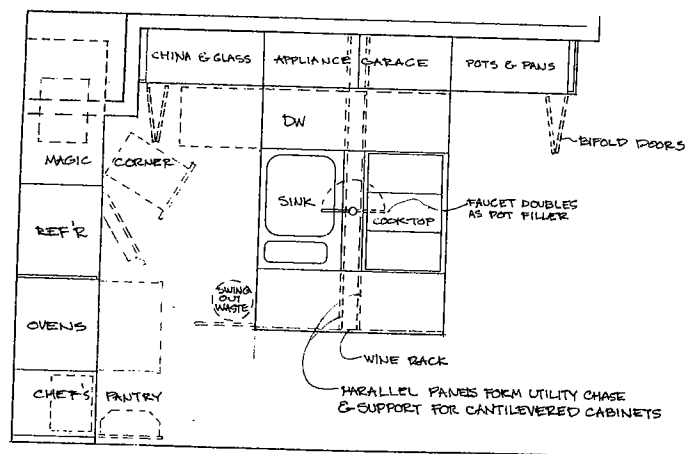 CHINA & GLASS
APPLIANCE GARAGE
POTS & PANS
DW
BIFOLD DOORS
MAGIC CORNER
SINK
FAUCET DOUBLES
AS POT FILLER
COOKTOP
REF'R
SWING
OUT
WASTE
OVENS
WINE RACK
CHEF'S PANTRY
PARALLEL PANELS FORM UTILITY CHASE
& SUPPORT FOR CANTILEVERED CABINETS